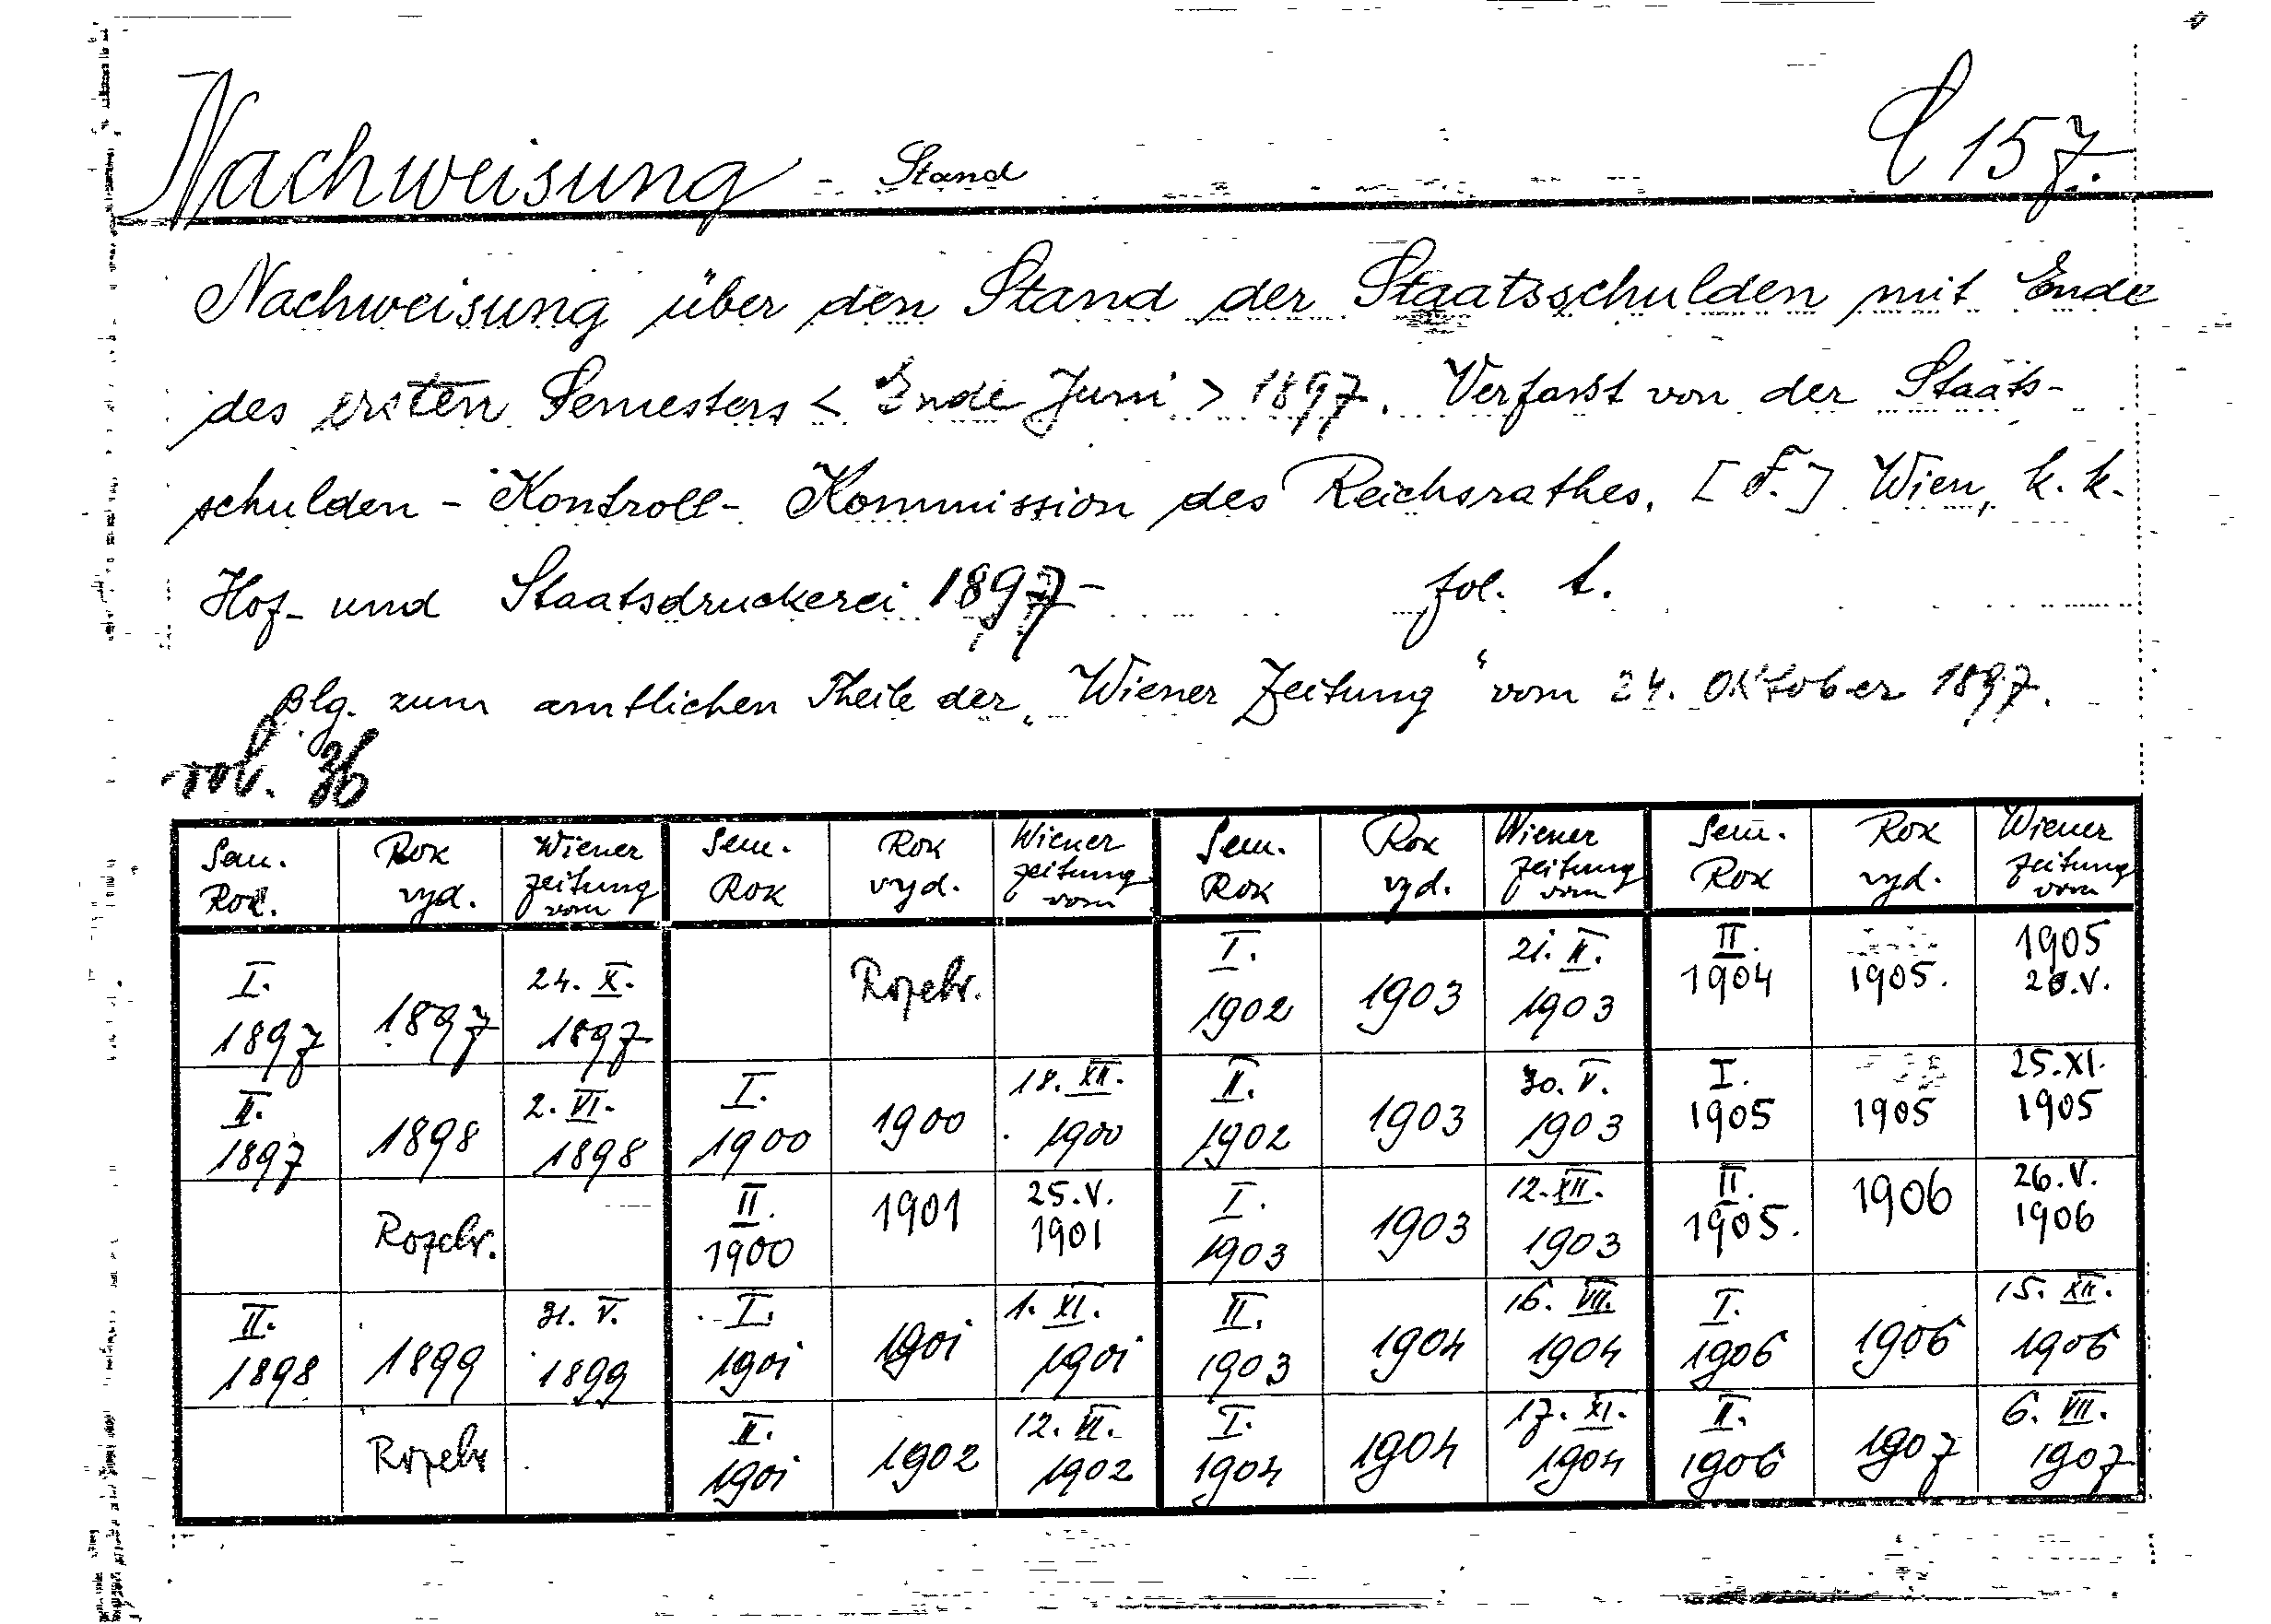 Nachweisung - Stand C 157.
Nachweisung über den Stand der Staatsschulden mit Ende
des ersten Semesters < Ende Juni > 1897. Verfasst von der Staats-
schulden - Kontroll - Kommission des Reichsrathes. [F.] Wien, k. k.
Hof- und Staatsdruckerei 1897- fol. t.
Blg. zum amtlichen Theile der „Wiener Zeitung“ vom 24. Oktober 1897.
rob. 36
Sem. Rok. | Rok vyd. | Wiener Zeitung vom | Sem. Rok | Rok vyd. | Wiener Zeitung vom | Sem. Rok | Rok vyd. | Wiener Zeitung vom | Sem. Rok | Rok vyd. | Wiener Zeitung vom
I. 1897 | 1897 | 24. X. 1897 | | Rozebr. | | I. 1902 | 1903 | 21. II. 1903 | II. 1904 | 1905. | 1905 20.V.
II. 1897 | 1898 | 2. VI. 1898 | I. 1900 | 1900 | 18. XII. 1900 | II. 1902 | 1903 | 30. V. 1903 | I. 1905 | 1905 | 25.XI. 1905
| Rozebr. | | II. 1900 | 1901 | 25.V. 1901 | I. 1903 | 1903 | 12. XII. 1903 | II. 1905. | 1906 | 26.V. 1906
II. 1898 | 1899 | 31. V. 1899 | I. 1901 | 1901 | 1. XI. 1901 | II. 1903 | 1904 | 16. VII. 1904 | I. 1906 | 1906 | 15. XII. 1906
| Rozebr | | II. 1901 | 1902 | 12. VI. 1902 | I. 1904 | 1904 | 17. XI. 1904 | II. 1906 | 1907 | 6. VII. 1907